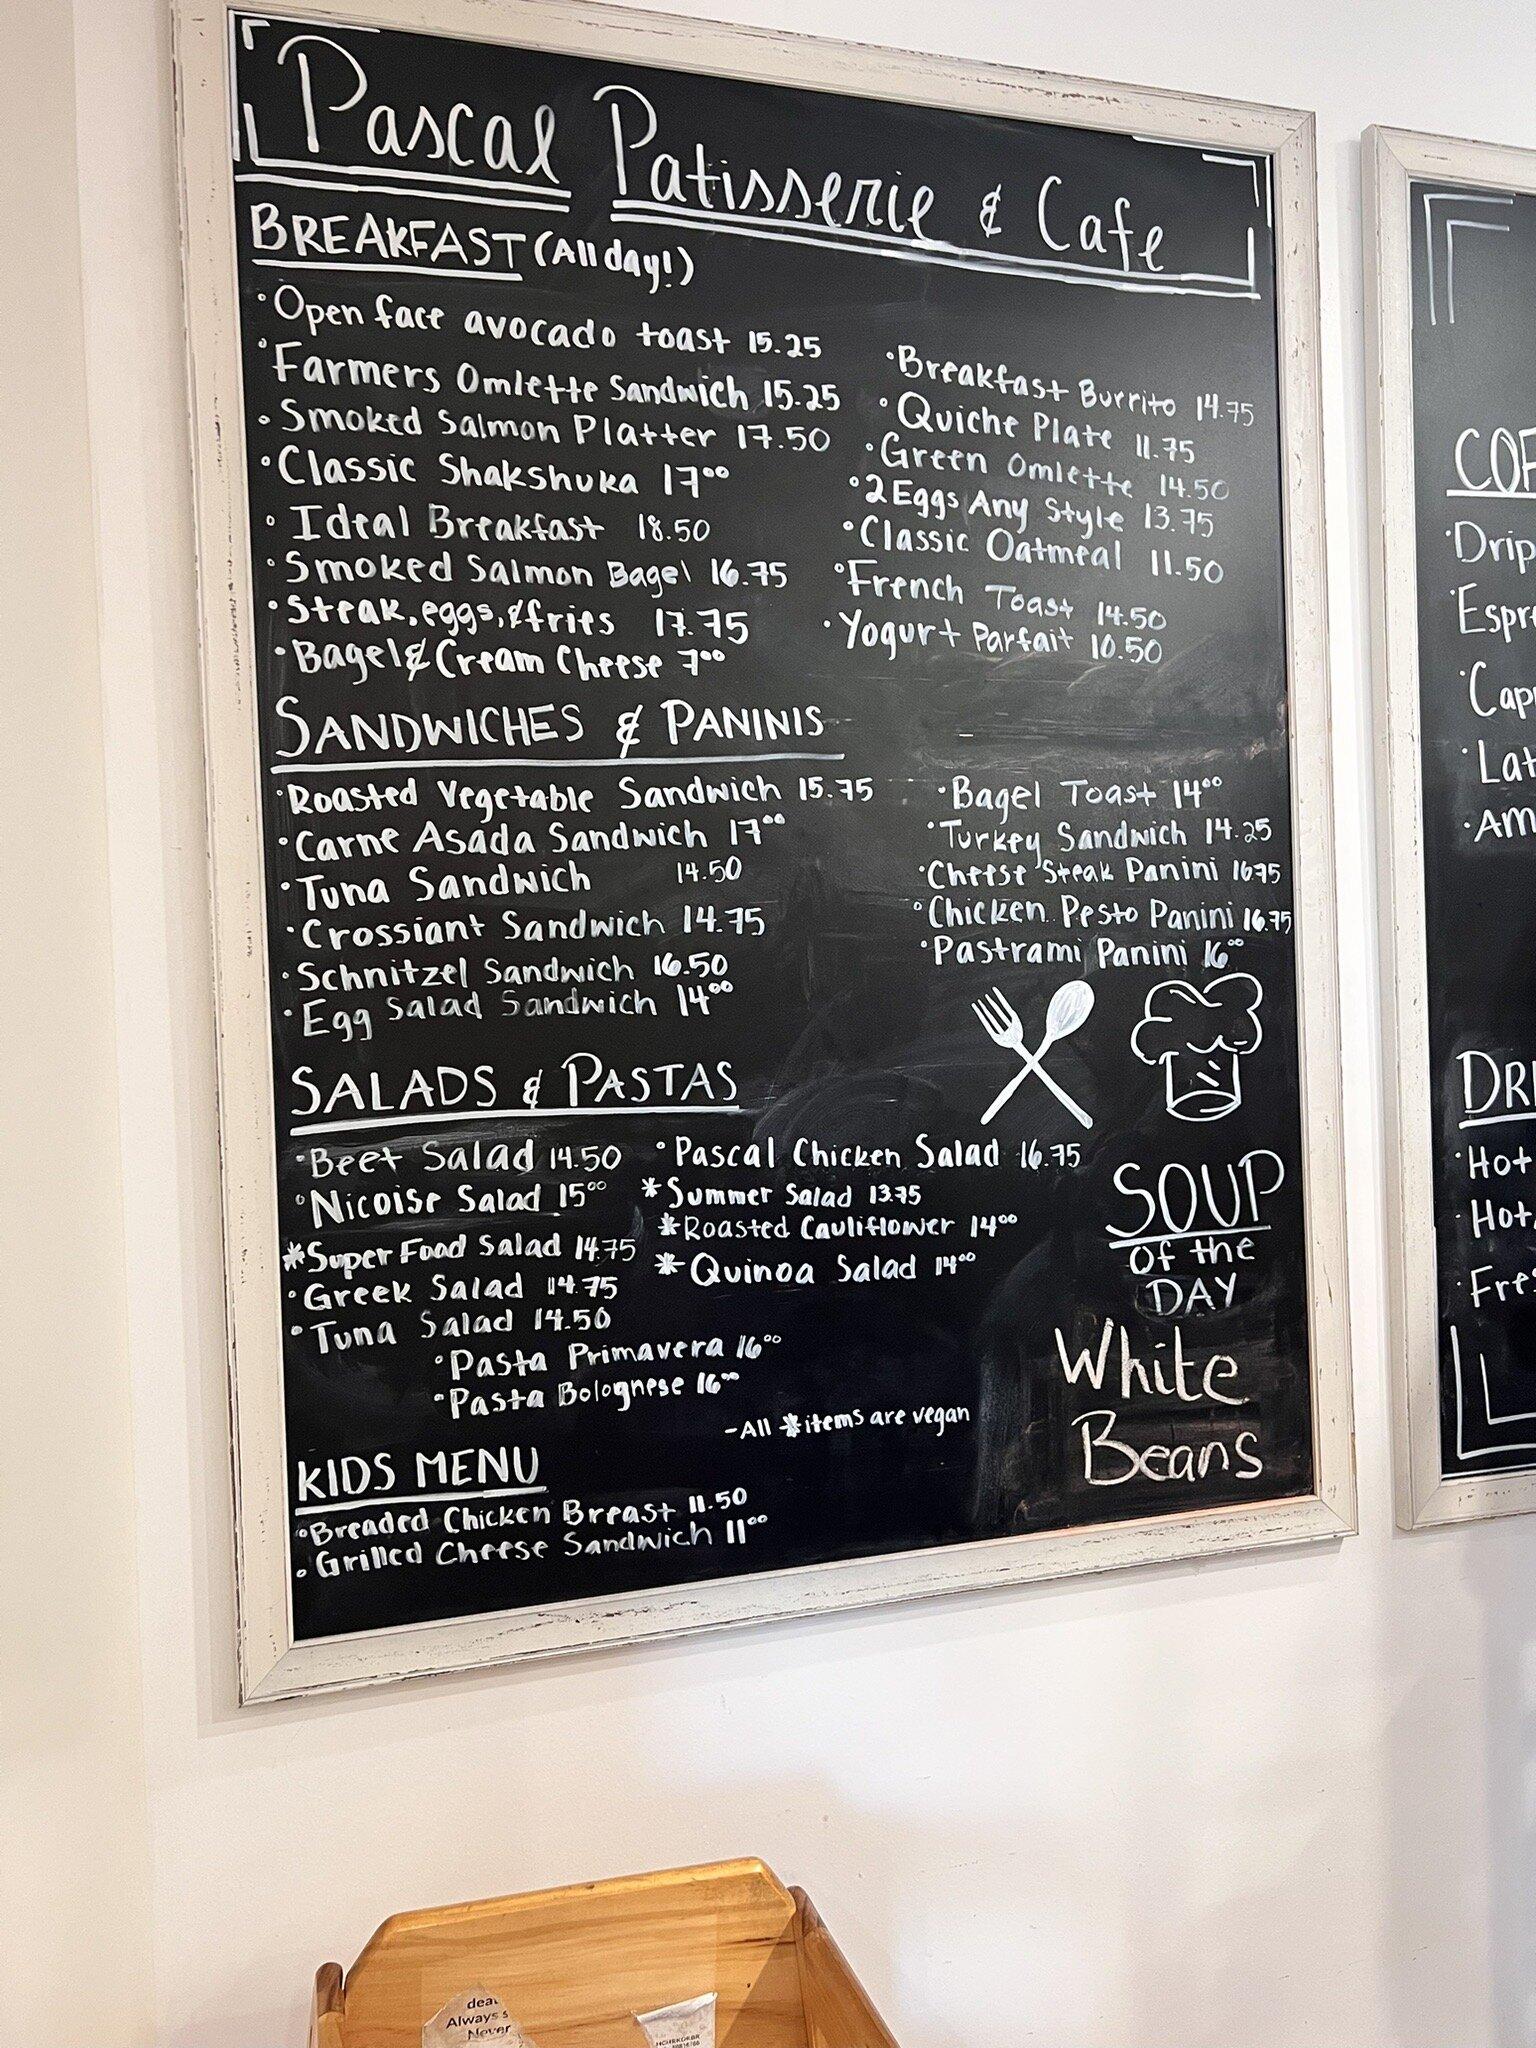 Pascal Patisserie & Cafe
BREAKFAST (All day!)
• Open face avocado toast 15.25
• Farmers Omlette Sandwich 15.25
• Smoked Salmon Platter 17.50
• Classic Shakshuka 17⁰⁰
• Ideal Breakfast 18.50
• Smoked Salmon Bagel 16.75
• Steak, eggs, & fries 17.75
• Bagel & Cream Cheese 7⁰⁰
• Breakfast Burrito 14.75
• Quiche Plate 11.75
• Green Omlette 14.50
• 2 Eggs Any Style 13.75
• Classic Oatmeal 11.50
• French Toast 14.50
• Yogurt Parfait 10.50
SANDWICHES & PANINIS
• Roasted Vegetable Sandwich 15.75
• Carne Asada Sandwich 17⁰⁰
• Tuna Sandwich 14.50
• Crossiant Sandwich 14.75
• Schnitzel Sandwich 16.50
• Egg Salad Sandwich 14⁰⁰
• Bagel Toast 14⁰⁰
• Turkey Sandwich 14.25
• Cheese Steak Panini 1675
• Chicken Pesto Panini 16.75
• Pastrami Panini 16⁰⁰
SALADS & PASTAS
• Beet Salad 14.50
• Nicoise Salad 15⁰⁰
* Super Food Salad 14.75
• Greek Salad 14.75
• Tuna Salad 14.50
• Pascal Chicken Salad 16.75
* Summer Salad 13.75
* Roasted Cauliflower 14⁰⁰
* Quinoa Salad 14⁰⁰
• Pasta Primavera 16⁰⁰
• Pasta Bolognese 16⁰⁰
- All * items are vegan
KIDS MENU
• Breaded Chicken Breast 11.50
• Grilled Cheese Sandwich 11⁰⁰
SOUP
Of the
DAY
White
Beans
COF
• Drip
• Espr
• Cap
• Lat
• Am
DRI
• Hot
• Hot
• Fre
deal
Always
Never